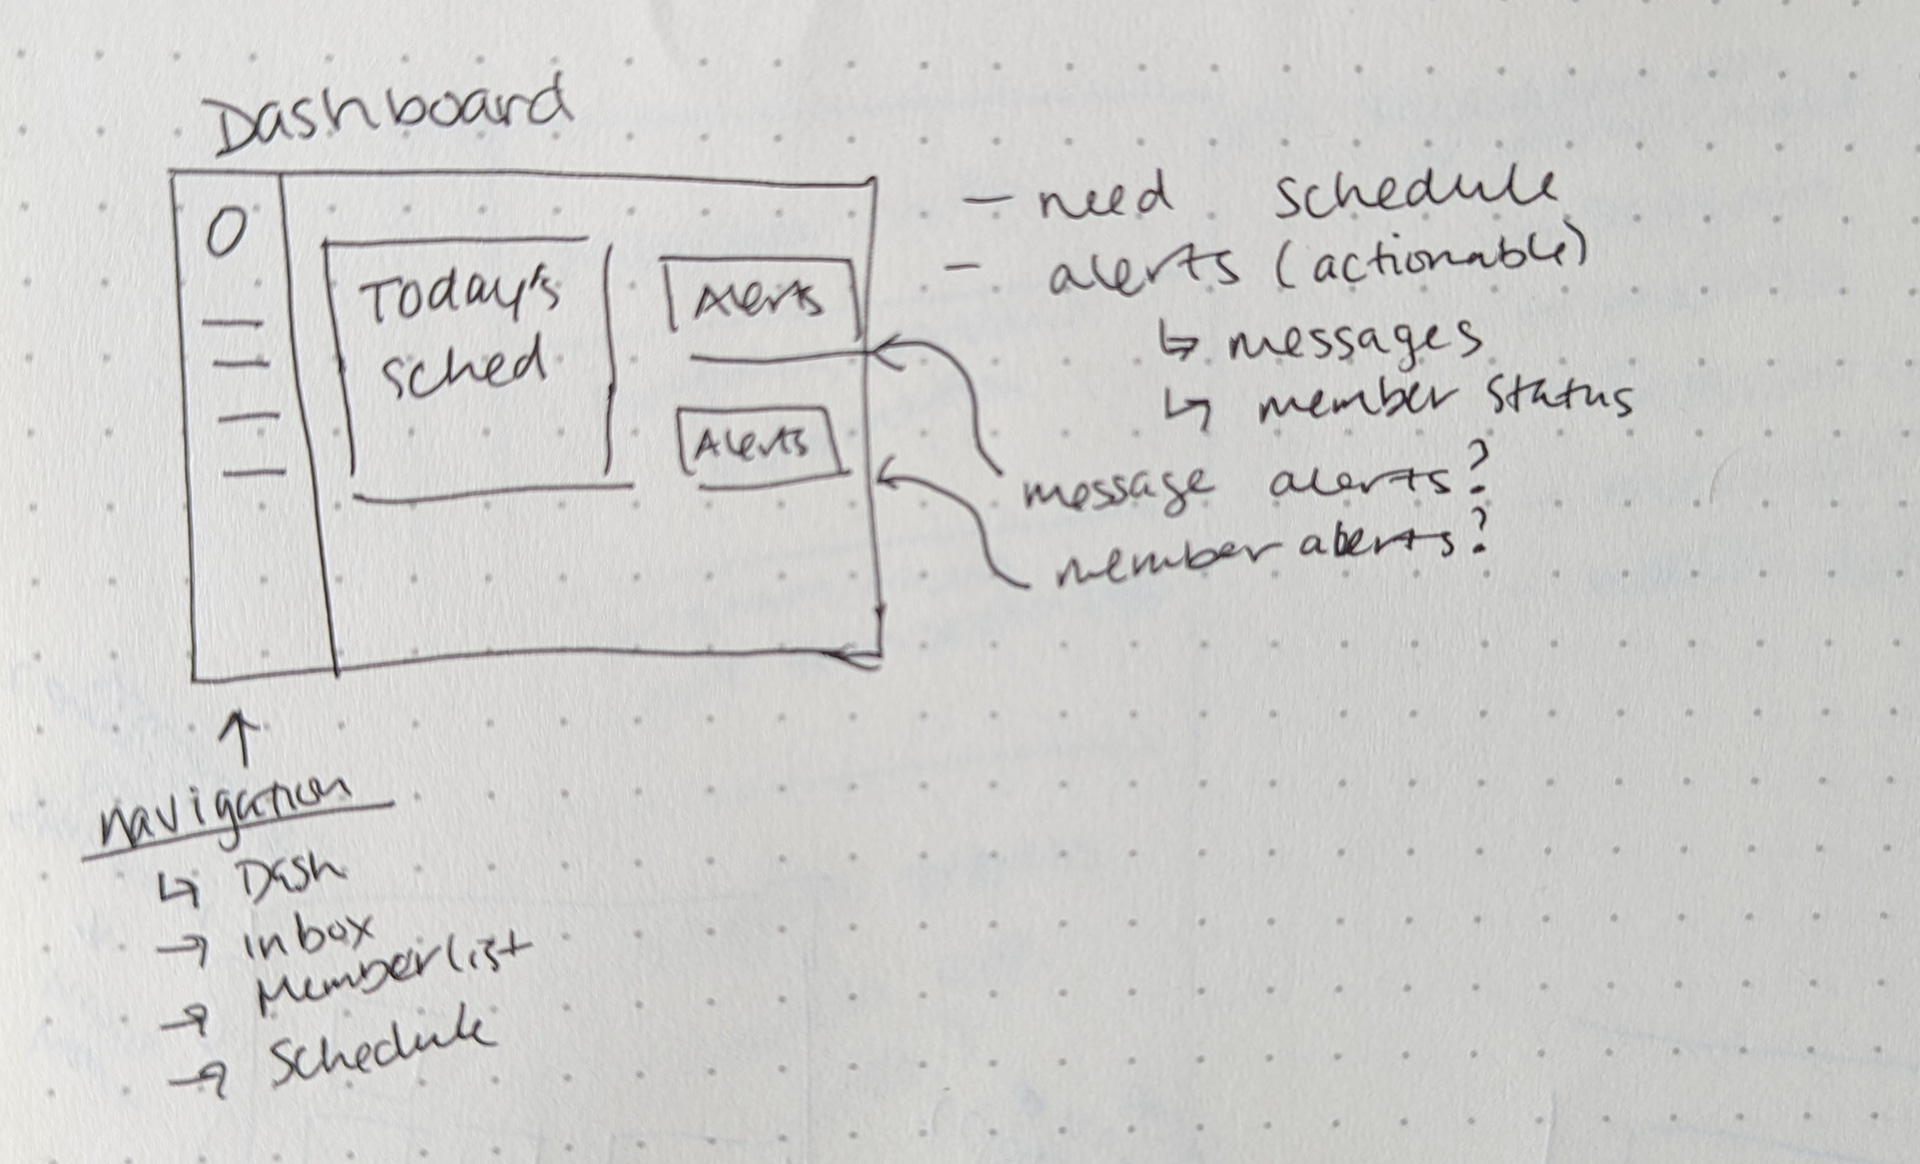 Dashboard
Today's
sched
Alerts
Alerts
- need schedule
- alerts (actionable)
↳ messages
↳ member status
message alerts?
member alerts?
↑
navigation
↳ Dash
→ inbox
→ Memberlist
→ Schedule